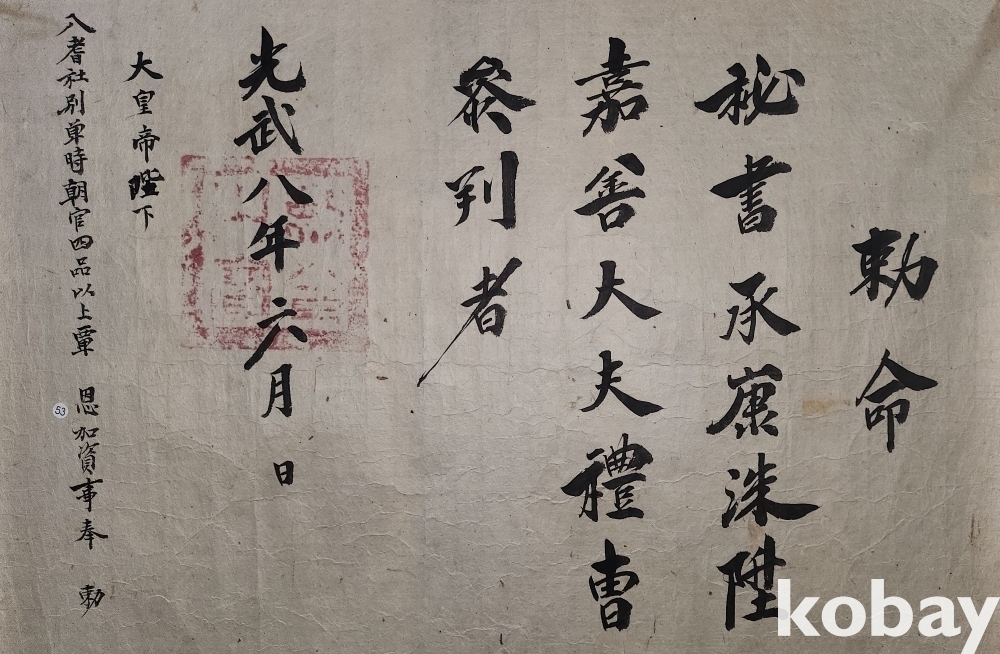 勅命
秘書承康洙陞
嘉善大夫禮曺
參判者
光武八年六月 日
大皇帝陛下
入耆社別單時朝官四品以上覃 恩加資事奉 勅
53
kobay